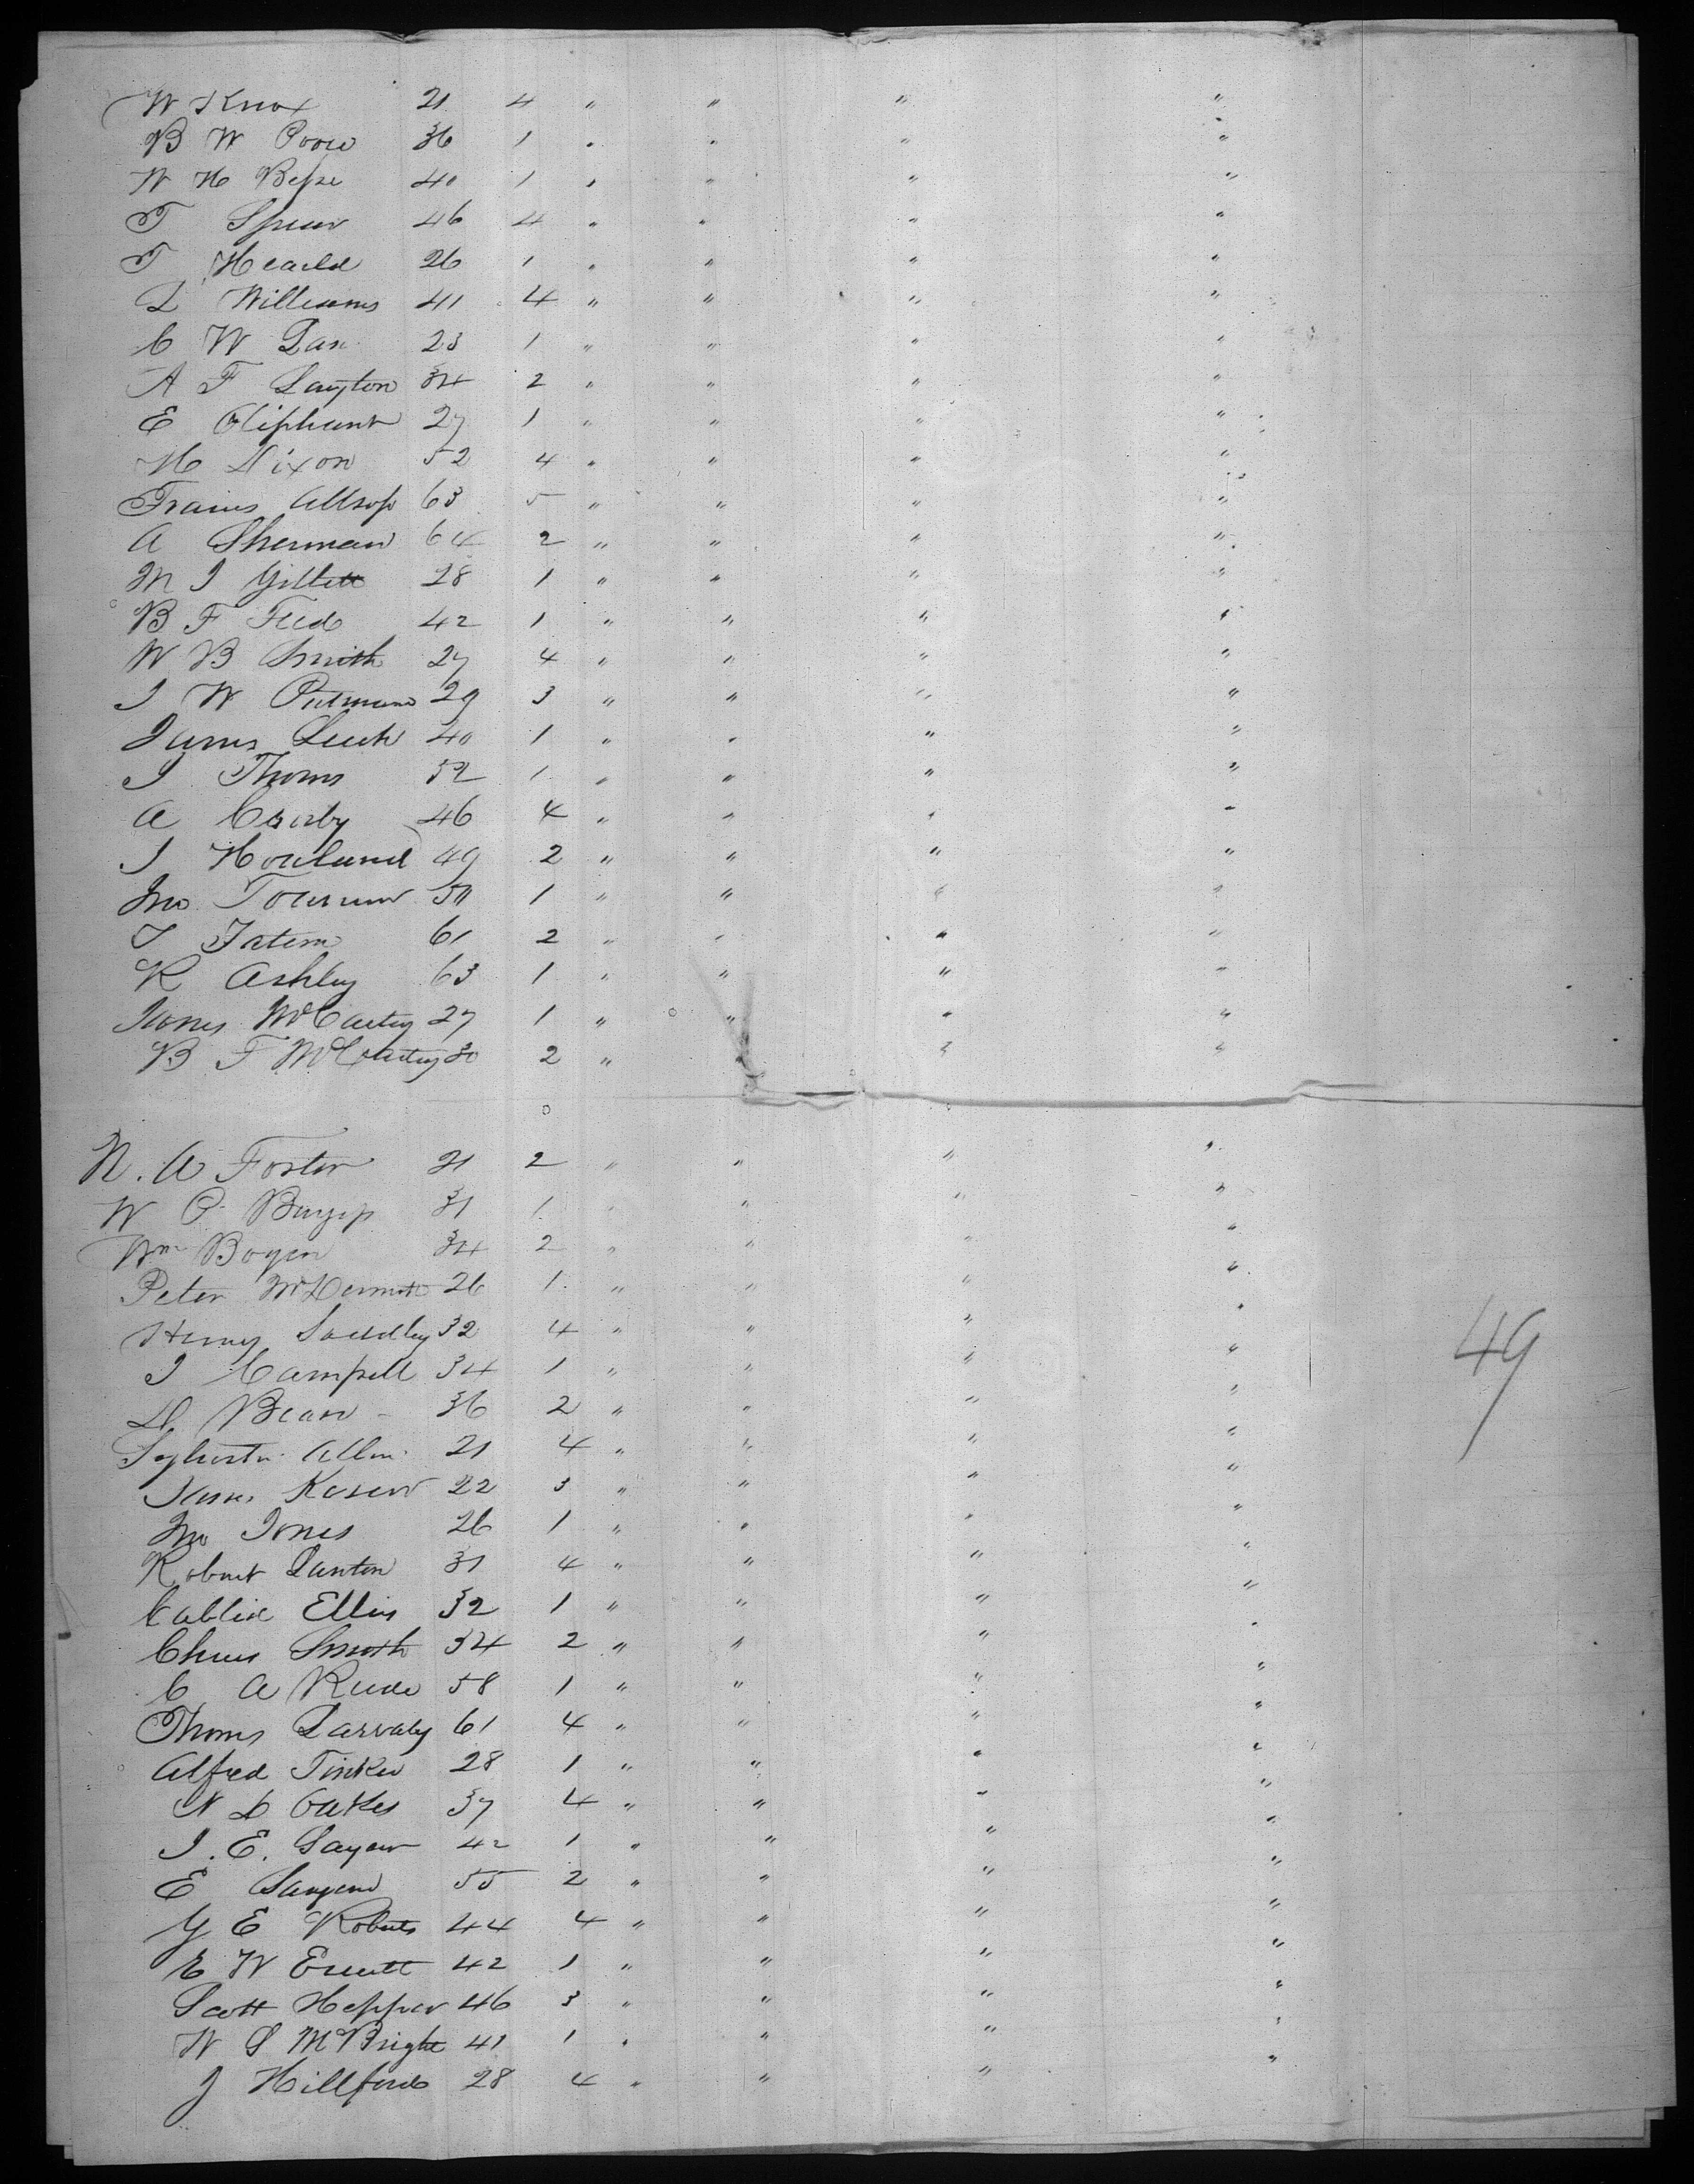 W Knox 21 4 " " " "
B W Poore 36 1 " " " "
W H Besse 40 1 " " " "
T Spear 46 4 " " " "
T Heald 26 1 " " " "
L Williams 41 4 " " " "
C W 23 1 " " " "
A F Layton 34 2 " " " "
E Oliphant 27 1 " " " "
H Dixon 52 4 " " " "
Francis Allsop 63 5 " " " "
A Sherman 64 2 " " " "
M J Gillett 28 1 " " " "
B F 42 1 " " " "
W B Smith 27 4 " " " "
J W Putmam 29 3 " " " "
James 40 1 " " " "
J Thoms 52 1 " " " "
A 46 4 " " " "
J Howland 49 2 " " " "
Jno 50 1 " " " "
T Tatem 61 2 " " " "
R Ashley 63 1 " " " "
James McCartey 27 1 " " " "
B F McCartey 30 2 " " " "
N. A Foster 21 2 " " " "
W P 31 1 " " " "
Wm Boyen 34 2 " " " "
Peter McDermott 26 1 " " " "
Henry 32 4 " " " "
J Campell 34 1 " " " "
D Bean 36 2 " " " "
Sylvester Allen 21 4 " " " "
22 3 " " " "
Jno Jones 26 1 " " " "
Robert Lanton 31 4 " " " "
Ellis 32 1 " " " "
Chas Smith 34 2 " " " "
C A 58 1 " " " "
Thoms 61 4 " " " "
Alfred Tinker 28 1 " " " "
N L Oakes 37 4 " " " "
J. E. 42 1 " " " "
E 55 2 " " " "
G E Roberts 44 4 " " " "
E W 42 1 " " " "
Scott 46 3 " " " "
W S McBright 41 1 " " " "
J Hillford 28 4 " " " "
49